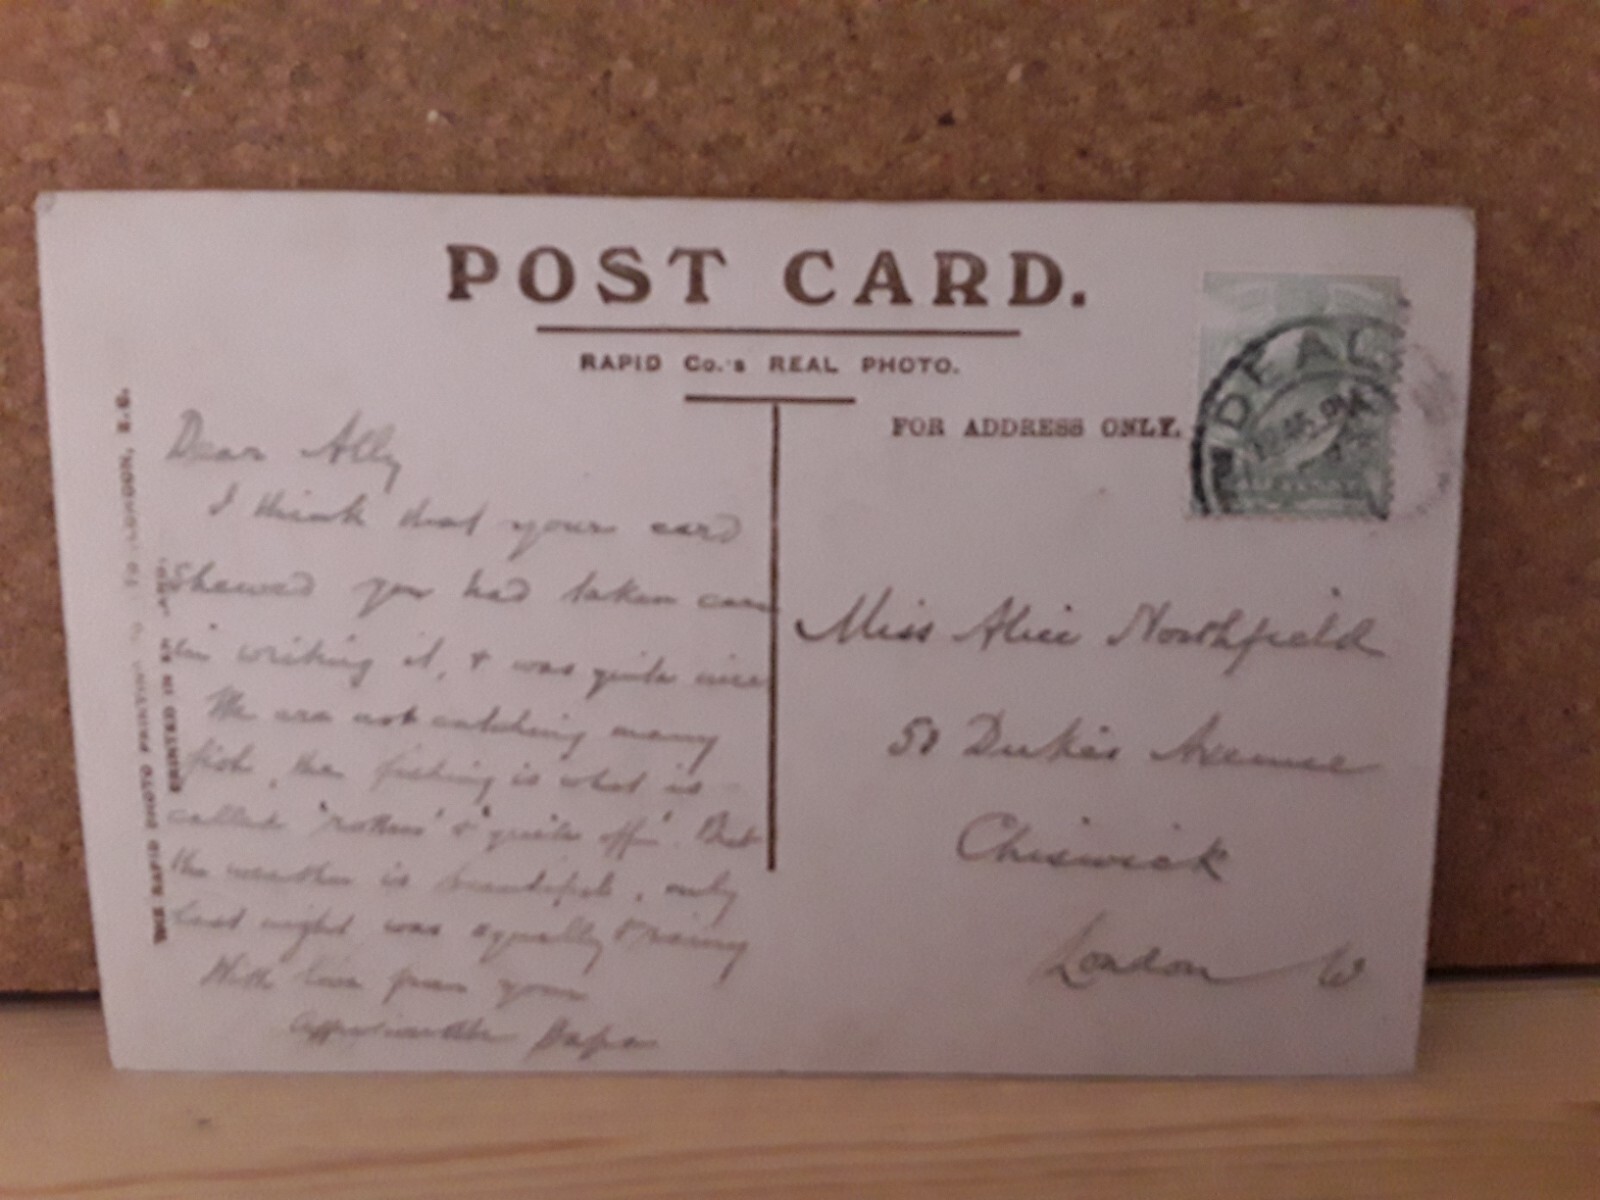 POST CARD.
RAPID Co.'s REAL PHOTO.
FOR ADDRESS ONLY.
DEAL
Dear Ally
I think that your card
shewed you had taken care
in writing it, & was quite nice
We are not catching many
fish, the fishing is what is
called 'rotten' & 'quite off'. But
the weather is beautiful, only
last night was squally & rainy
With love from your
affectionate Papa
Miss Alice Northfield
50 Dukes Avenue
Chiswick
London W
THE RAPID PHOTO PRINTING LONDON, E.C.
PRINTED IN